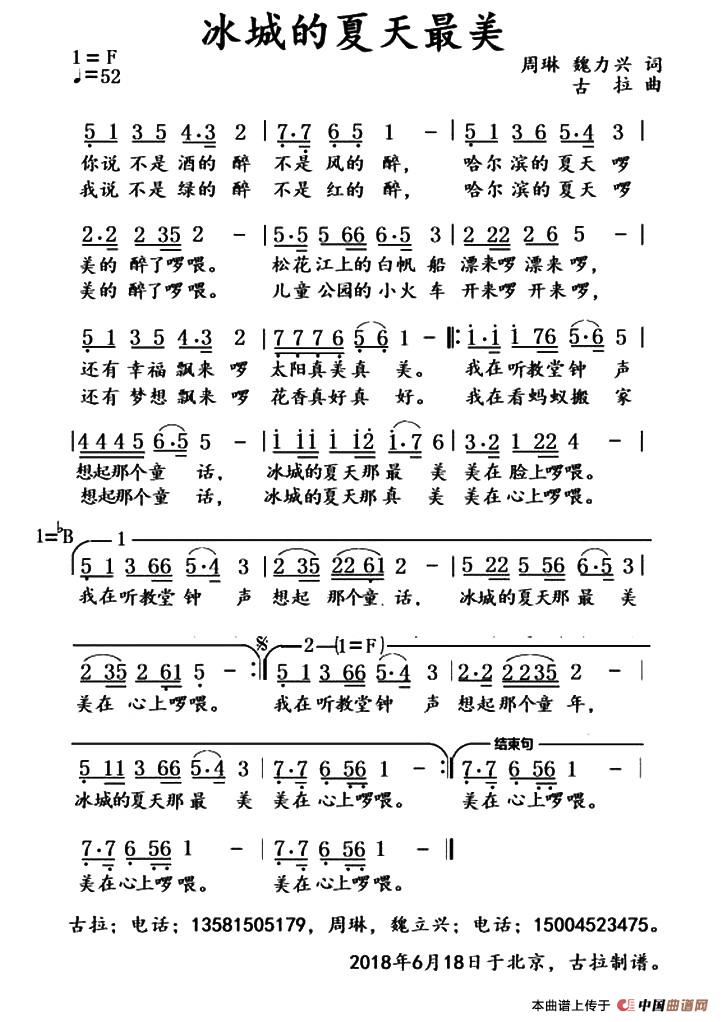 冰城的夏天最美
1=F
♩=52
周琳 魏力兴 词
古 拉 曲
5 1 3 5 4·3 2 | 7·7 6 5 1 - | 5 1 3 6 5·4 3 |
你说 不是 酒的 醉 不是 风的 醉， 哈尔 滨的 夏天 啰
我说 不是 绿的 醉 不是 红的 醉， 哈尔 滨的 夏天 啰
2·2 2 35 2 - | 5·5 5 66 6·5 3 | 2 22 2 6 5 - |
美的 醉了啰喂。 松花 江上的 白帆 船 漂来啰 漂来 啰，
美的 醉了啰喂。 儿童 公园的 小火 车 开来啰 开来 啰，
5 1 3 5 4·3 2 | 7 7 7 6 5 6 1 - ‖: 1·1 1 76 5·6 5 |
还有 幸福 飘来 啰 太阳真美真 美。 我在 听教堂 钟 声
还有 梦想 飘来 啰 花香真好真 好。 我在 看蚂蚁 搬 家
| 4 4 4 5 6·5 5 - | 1 11 1 12 1·7 6 | 3·2 1 22 4 - |
想起那个童 话， 冰城的夏天那 最 美 美在 脸上啰喂。
想起那个童 话， 冰城的夏天那 真 美 美在 心上啰喂。
1=♭B 1
5 1 3 66 5·4 3 | 2 35 22 61 2 - | 5 22 5 56 6·5 3 |
我在 听教堂 钟 声 想起 那个童 话， 冰城的夏天那 最 美
𝄋 2 (1=F)
2 35 2 61 5 - :‖ 5 1 3 66 5·4 3 | 2·2 2235 2 - |
美在 心上啰喂。 我在 听教堂钟 声 想起 那个童 年，
结束句
5 11 3 66 5·4 3 | 7·7 6 56 1 - :‖ 7·7 6 56 1 - |
冰城的夏天那 最 美 美在 心上啰喂。 美在 心上啰喂。
7·7 6 56 1 - | 7·7 6 56 1 - ‖
美在心上啰喂。 美在 心上啰喂。
古拉；电话；13581505179，周琳，魏立兴；电话；15004523475。
2018年6月18日于北京，古拉制谱。
本曲谱上传于 中国曲谱网